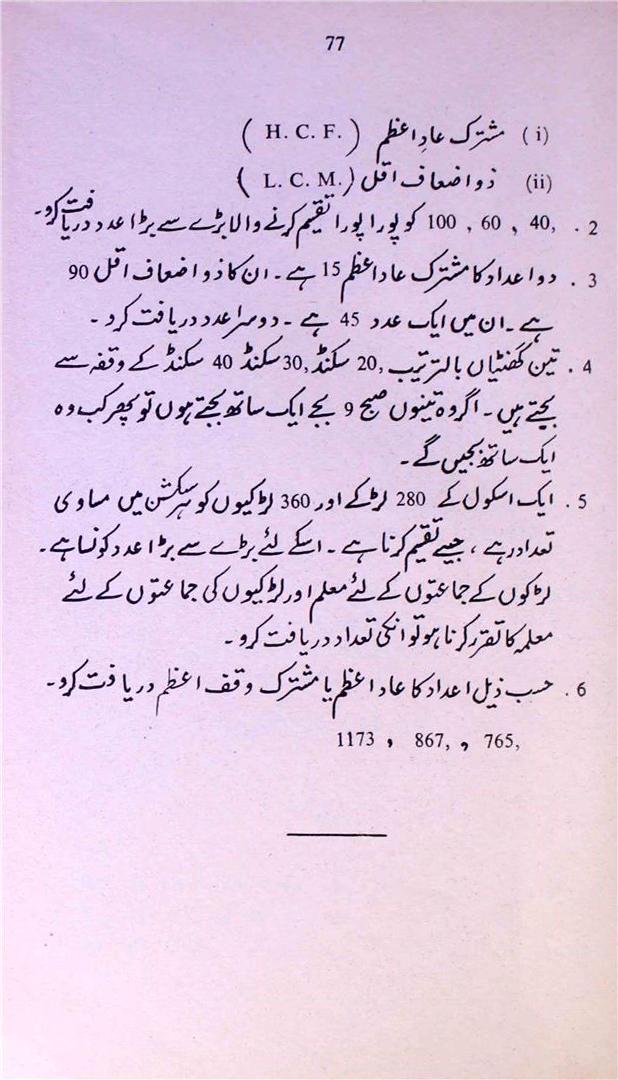 77
(i) مشترک عادِ اعظم (H. C. F.)
(ii) ذو اضعاف اقل (L. C. M.)
2. 40, , 60 , 100 کو پورا پورا تقیم کرنے والا بڑے سے بڑا عدد دریافت کرو۔
3. دو اعداد کا مشترک عاد اعظم 15 ہے۔ ان کا ذو اضعاف اقل 90
ہے۔ ان میں ایک عدد 45 ہے ۔ دوسرا عدد دریافت کرو ۔
4. تین گھنٹیاں بالترتیب 20, سکنڈ 30, سکنڈ 40 سکنڈ کے وقفہ سے
بجتے ہیں۔ اگر وہ تینوں صبح 9 بجے ایک ساتھ بجتے ہوں تو پھر کب وہ
ایک ساتھ بجیں گے۔
5. ایک اسکول کے 280 لڑکے اور 360 لڑکیوں کو ہر سکشن میں مساوی
تعداد رہے ، جیسے تقیم کرنا ہے۔ اسکے لئے بڑے سے بڑا عدد کونسا ہے۔
لڑکوں کے جماعتوں کے لئے معلم اور لڑکیوں کی جماعتوں کے لئے
معلمہ کا تقرر کرنا ہو تو انکی تعداد دریافت کرو ۔
6. حسب ذیل اعداد کا عاد اعظم یا مشترک وقف اعظم دریافت کرو۔
765, , 867, , 1173